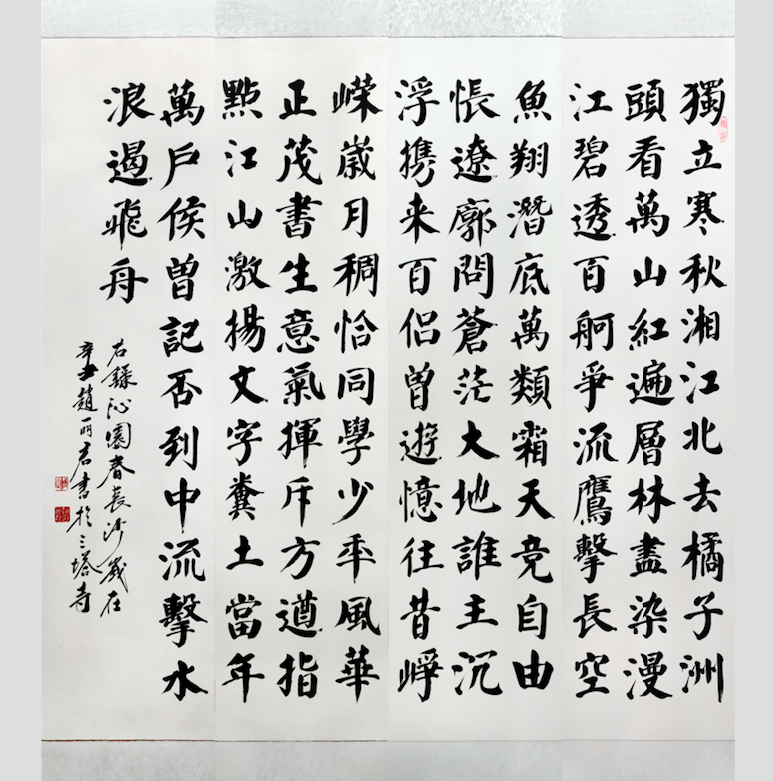 獨立寒秋湘江北去橘子洲
頭看萬山紅遍層林盡染漫
江碧透百舸爭流鷹擊長空
魚翔潛底萬類霜天竞自由
悵遼廓問蒼茫大地誰主沉
浮携来百侣曾遊憶往昔崢
嶸歲月稠恰同學少年風華
正茂書生意氣揮斥方遒指
點江山激揚文字糞土當年
萬戶侯曾記否到中流擊水
浪遏飛舟
右錄沁園春長沙歲在
辛丑趙丽君書於三塔寺